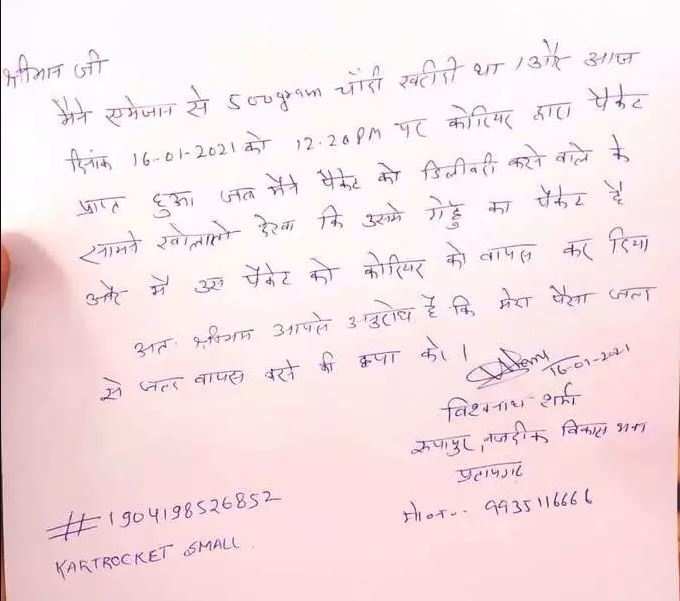 श्रीमान जी
मैने एमेजान से 500gram चाँदी खरीदी था / और आज
दिनांक 16-01-2021 को 12.20PM पर कोरियर द्वारा पैकेट
प्राप्त हुआ जब मैने पैकेट को डिलीवरी करने वाले के
सामने खोलातो देखा कि उसमे गेहु का पैकेट है
और मै उस पैकेट को कोरियर को वापस कर दिया
अतः श्रीमान आपसे अनुरोध है कि मेरा पैसा जल्द
से जल्द वापस करने की कृपा करे।
16-01-2021
विश्वनाथ शर्मा
रूपापुर, नजदीक विकास भवन
प्रतापगढ़
मो०न०-- 9935116666
# 1904198526852
KARTROCKET SMALL.